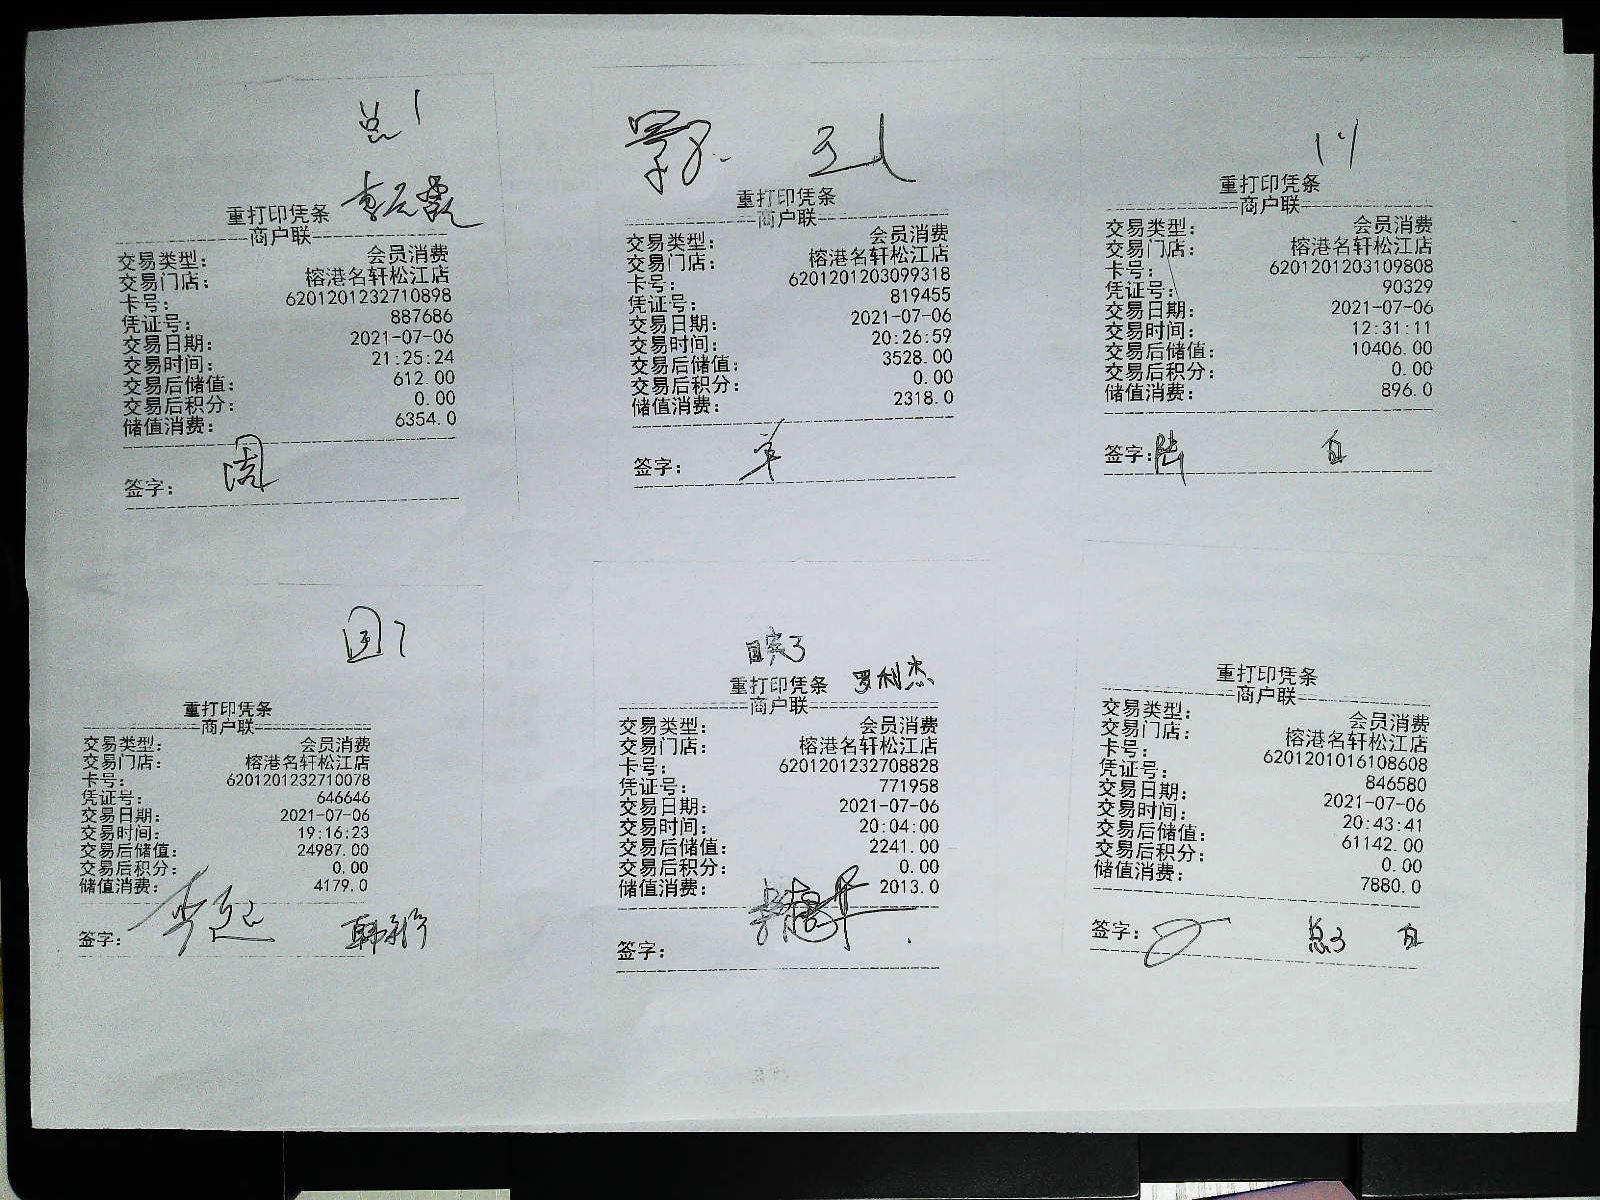 总1
重打印凭条
商户联
交易类型： 会员消费
交易门店： 榕港名轩松江店
卡号： 6201201232710898
凭证号： 887686
交易日期： 2021-07-06
交易时间： 21:25:24
交易后储值： 612.00
交易后积分： 0.00
储值消费： 6354.0
签字： 周
重打印凭条
商户联
交易类型： 会员消费
交易门店： 榕港名轩松江店
卡号： 6201201203099318
凭证号： 819455
交易日期： 2021-07-06
交易时间： 20:26:59
交易后储值： 3528.00
交易后积分： 0.00
储值消费： 2318.0
签字：
重打印凭条
商户联
交易类型： 会员消费
交易门店： 榕港名轩松江店
卡号： 6201201203109808
凭证号： 90329
交易日期： 2021-07-06
交易时间： 12:31:11
交易后储值： 10406.00
交易后积分： 0.00
储值消费： 896.0
签字： 陆
重打印凭条
商户联
交易类型： 会员消费
交易门店： 榕港名轩松江店
卡号： 6201201232710078
凭证号： 646646
交易日期： 2021-07-06
交易时间： 19:16:23
交易后储值： 24987.00
交易后积分： 0.00
储值消费： 4179.0
签字：
国宾3
重打印凭条 罗利杰
商户联
交易类型： 会员消费
交易门店： 榕港名轩松江店
卡号： 6201201232708828
凭证号： 771958
交易日期： 2021-07-06
交易时间： 20:04:00
交易后储值： 2241.00
交易后积分： 0.00
储值消费： 2013.0
签字：
重打印凭条
商户联
交易类型： 会员消费
交易门店： 榕港名轩松江店
卡号： 6201201016108608
凭证号： 846580
交易日期： 2021-07-06
交易时间： 20:43:41
交易后储值： 61142.00
交易后积分： 0.00
储值消费： 7880.0
签字： 总3